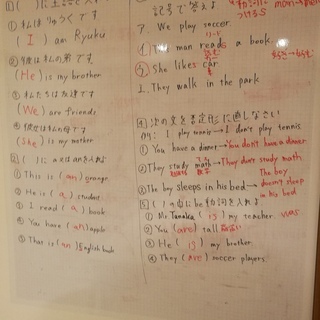 ① (I) am Ryuku
② 彼は私の弟です
(He) is my brother
③ 私たちは友達です
(We) are friends
④ 彼女は私の母です
(She) is my mother
① This is (an) orange.
② He is (a) student
③ I read (a) book
④ You have (an) apple
⑤ That is (an) English book
記号で答えよ
ア. We play soccer.
The man reads a book
She likes car
They walk in the park
4 次の文を否定形に直しなさい
例: I play tennis → I don't play tennis
① You have a dinner → You don't have a dinner.
② They study math → They don't study math.
③ The boy sleeps in his bed → The boy doesn't sleep in his bed
① Mr. Tanaka (is) my teacher was
② You (are) tall
③ He (is) my brother
④ They (are) soccer players.